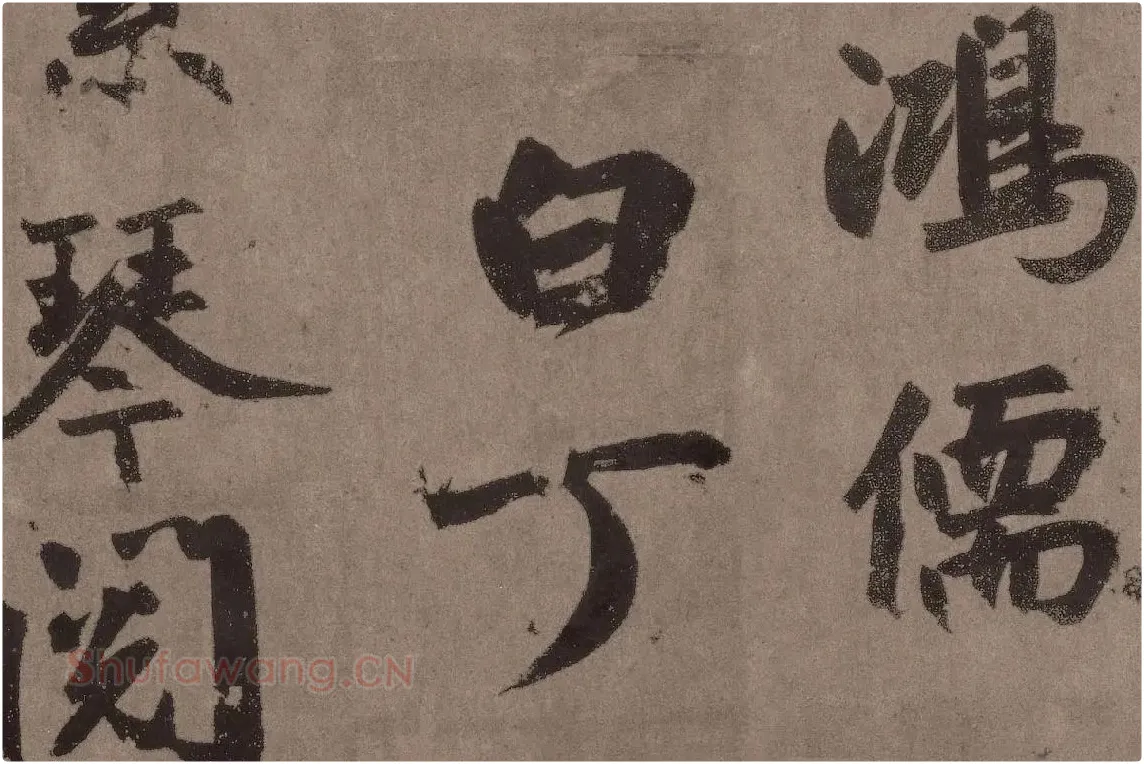 鴻儒
白丁
素琴閱
Shufawang.CN